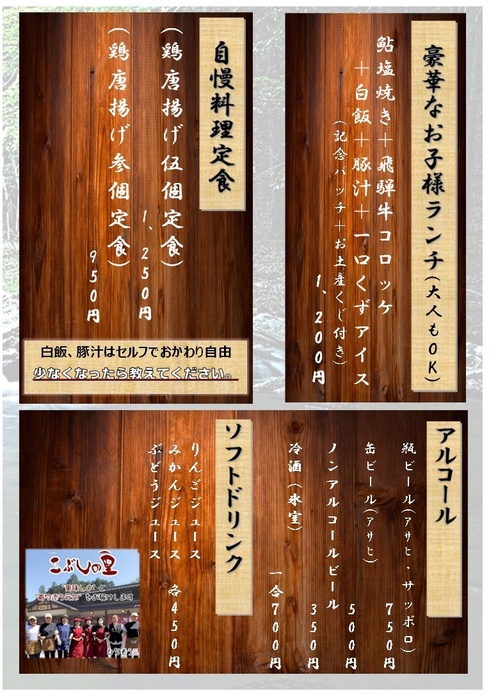 豪華なお子様ランチ(大人もOK)
鮎塩焼き+飛騨牛コロッケ
+白飯+豚汁+一口くずアイス
(記念バッチ+お土産くじ付き)
1、200円
自慢料理定食
(鶏唐揚げ伍個定食)
1、250円
(鶏唐揚げ参個定食)
950円
白飯、豚汁はセルフでおかわり自由
少なくなったら教えてください。
アルコール
瓶ビール(アサヒ・サッポロ)
750円
缶ビール(アサヒ)
500円
ノンアルコールビール
350円
冷酒(氷室)
一合700円
ソフトドリンク
りんごジュース
みかんジュース 各450円
ぶどうジュース
こぶしの里